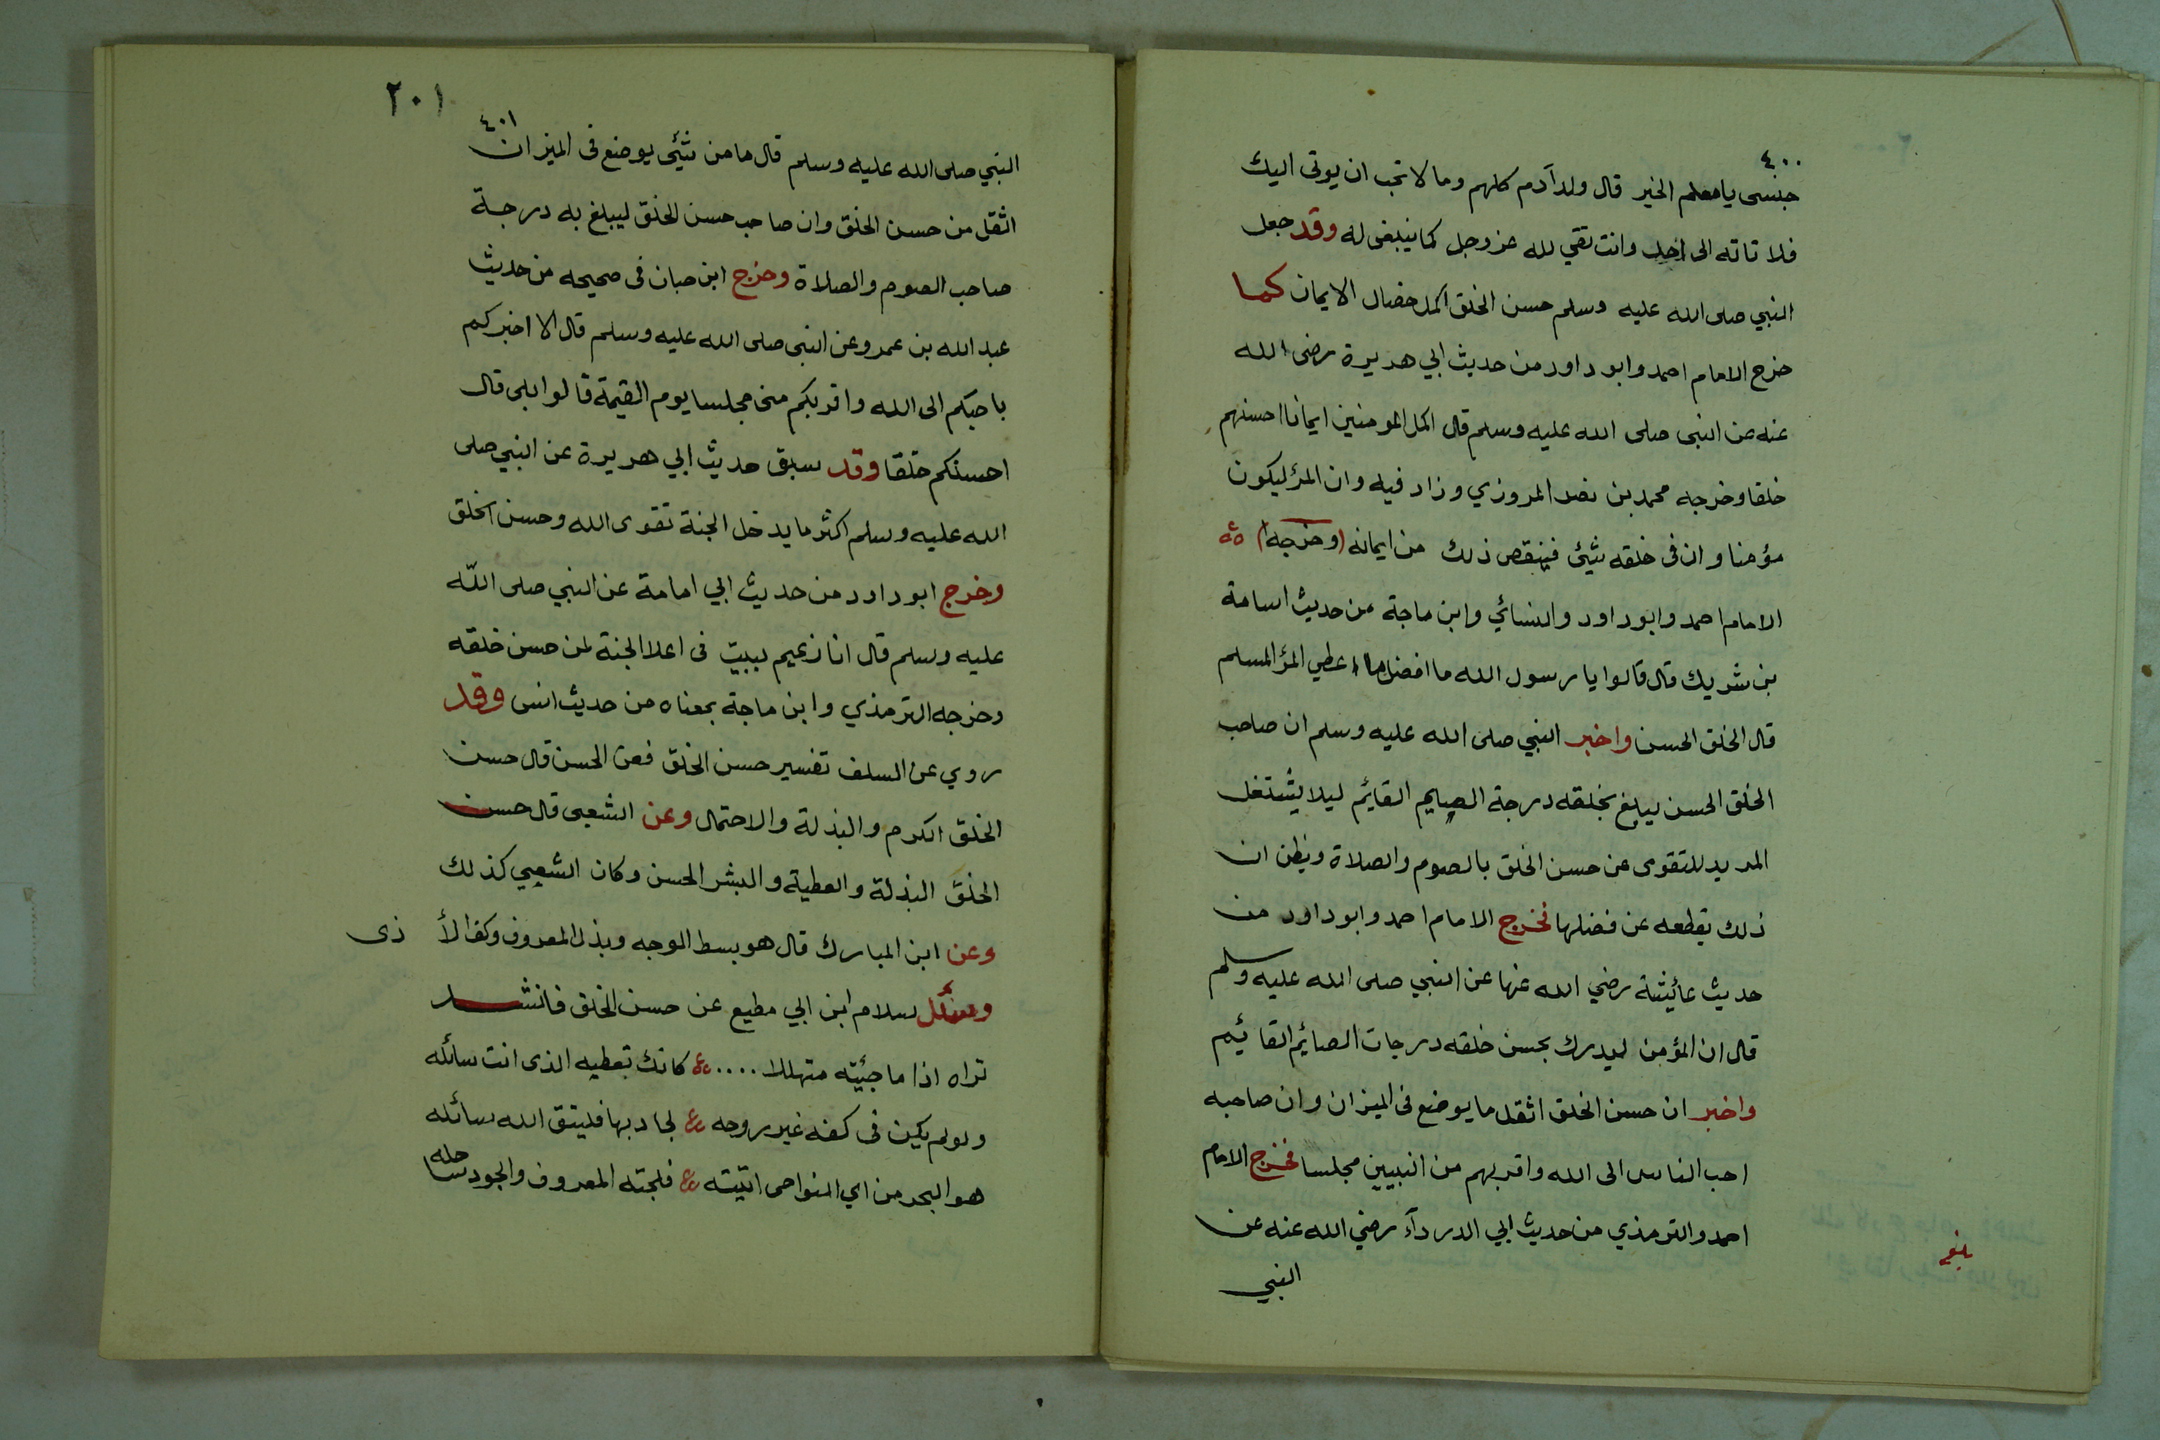 ٤٠٠
جنسى يا معلم الخير قال ولد آدم كلهم وما لا تحب ان يوتى اليك
فلا تاته الى احد وانت تقي لله عز وجل كما ينبغى له وقد جعل
النبي صلى الله عليه وسلم حسن الخلق اكمل خصال الايمان كما
خرج الامام احمد وابو داود من حديث ابي هريرة رضى الله
عنه عن النبى صلى الله عليه وسلم قال اكمل المومنين ايمانا احسنهم
خلقا وخرجه محمد بن نصر المروزي وزاد فيه وان المرٔ ليكون
مؤمنا وان فى خلقه شيئ فينقص ذلك من ايمانه (وخرجه)
الامام احمد وابو داود والنسائي وابن ماجة من حديث اسامة
بن شريك قال قالوا يا رسول الله ما افضل ما اعطي المرٔ المسلم
قال الخلق الحسن واخبر النبي صلى الله عليه وسلم ان صاحب
الخلق الحسن يبلغ بخلقه درجة الصايم القائم ليلا يشتغل
المريد للتقوى عن حسن الخلق بالصوم والصلاة ويظن ان
ذلك يقطعه عن فضلها فخرج الامام احمد وابو داود من
حديث عائيشة رضي الله عنها عن النبي صلى الله عليه وسلم
قال ان المؤمن ليدرك بحسن خلقه درجات الصائم القائم
واخبر ان حسن الخلق اثقل ما يوضع فى الميزان وان صاحبه
احب الناس الى الله واقربهم من النبيين مجلسا فخرج الامام
احمد والترمذي من حديث ابي الدردآء رضي الله عنه عن
النبي
بلغ
٢٠١
٤٠١
النبي صلى الله عليه وسلم قال ما من شئى يوضع فى الميزان
اثقل من حسن الخلق وان صاحب حسن الخلق ليبلغ به درجة
صاحب الصوم والصلاة وخرج ابن حبان فى صحيحه من حديث
عبد الله بن عمرو عن النبى صلى الله عليه وسلم قال الا اخبركم
باحبكم الى الله واقربكم منى مجلسا يوم القيمة قالوا بلى قال
احسنكم خلقا وقد سبق حديث ابي هريرة عن النبي صلى
الله عليه وسلم اكثر ما يدخل الجنة تقوى الله وحسن الخلق
وخرج ابو داود من حديث ابي امامة عن النبي صلى اللّه
عليه وسلم قال انا زعيم ببيت فى اعلا الجنة لمن حسن خلقه
وخرجه الترمذي وابن ماجة بمعناه من حديث انس وقد
روي عن السلف تفسير حسن الخلق فعن الحسن قال حسن
الخلق الكرم والبذلة والاحتمال وعن الشعبى قال حسن
الخلق البذلة والعطية والبشر الحسن وكان الشعبي كذلك
وعن ابن المبارك قال هو بسط الوجه وبذل المعروف وكف الأ ذى
وسئل سلام ابن ابي مطيع عن حسن الخلق فانشد
تراه اذا ما جئيته متهللا .... كانك تعطيه الذى انت سائله
ولو لم يكن فى كفه غير روحه لجاد بها فليتق الله سائله
هو البحر من اي النواحى اتيته فلجته المعروف والجود ساحله